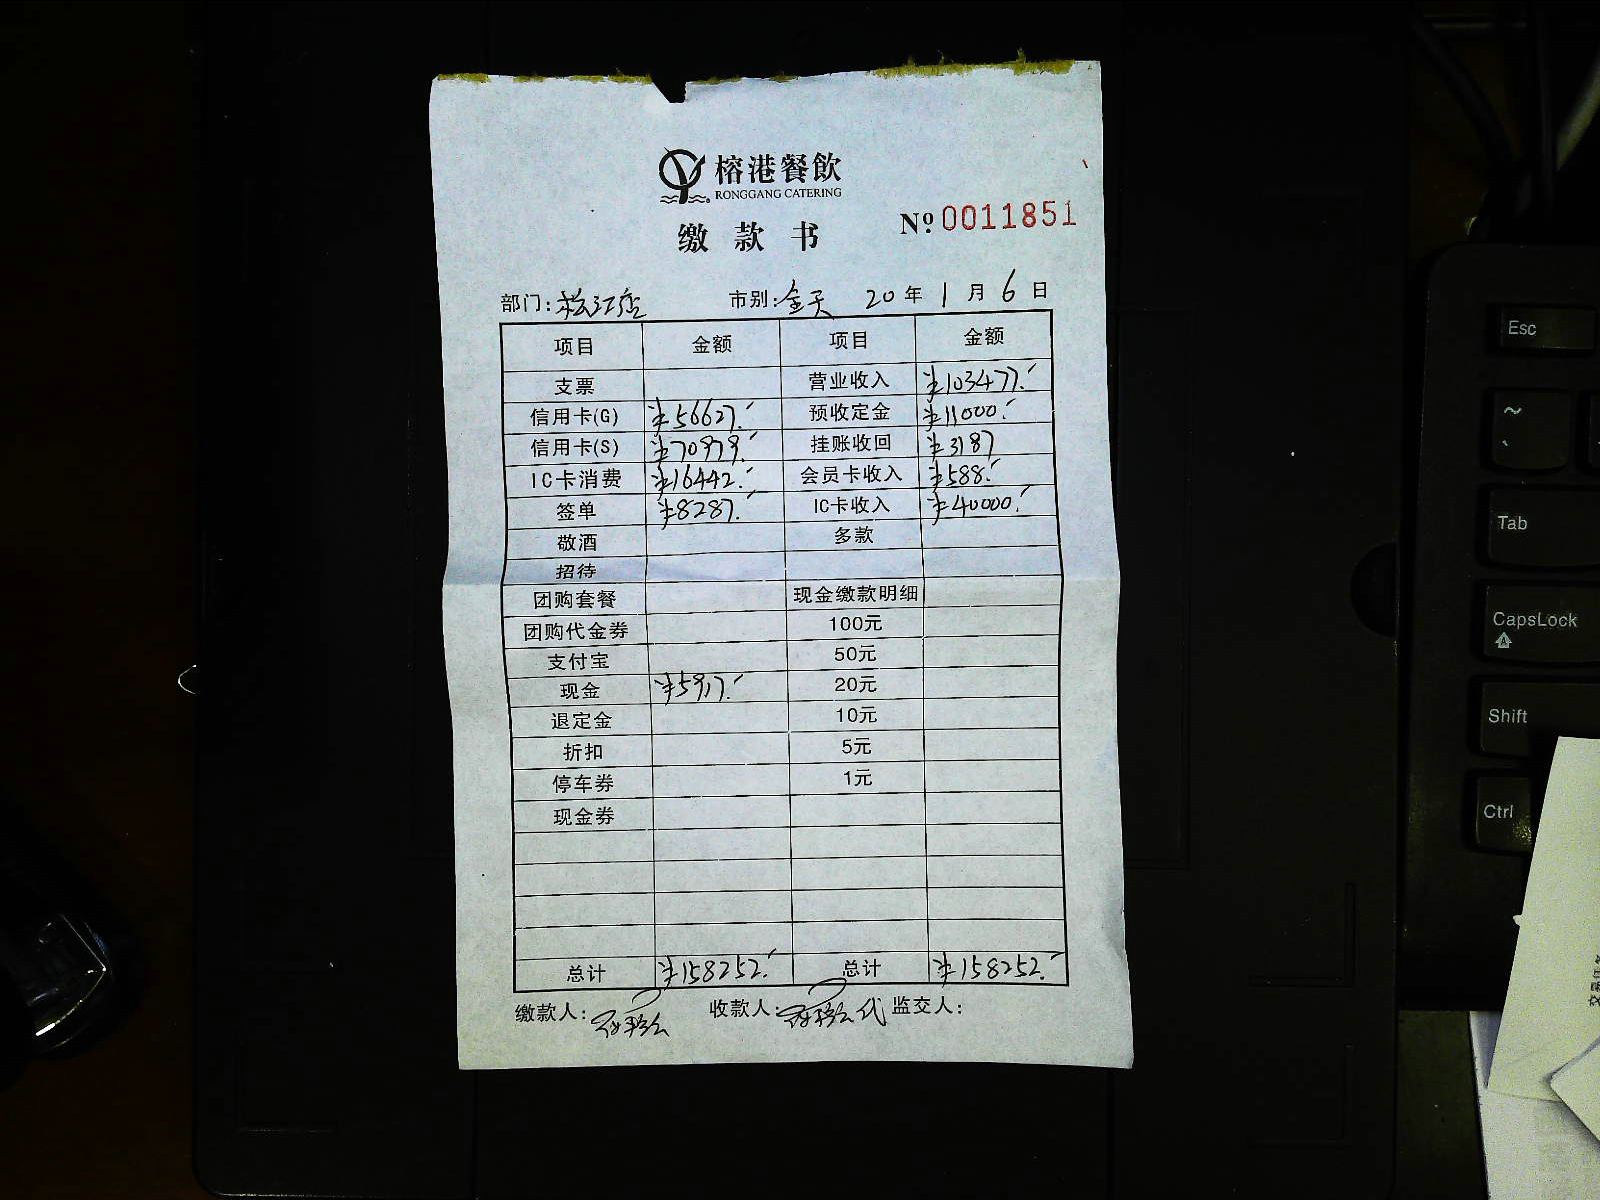 榕港餐飲
RONGGANG CATERING
缴款书
Nº 0011851
部门: 松江店 市别: 全天 20 年 1 月 6 日
项目 金额 项目 金额
支票 营业收入 ¥103477.-
信用卡(G) ¥56627.- 预收定金 ¥11000.-
信用卡(S) ¥70979.- 挂账收回 ¥3187
IC卡消费 ¥16442.- 会员卡收入 ¥588.-
签单 ¥8287.- IC卡收入 ¥40000.-
敬酒 多款
招待
团购套餐 现金缴款明细
团购代金券 100元
支付宝 50元
现金 ¥5917.- 20元
退定金 10元
折扣 5元
停车券 1元
现金券
总计 ¥158252.- 总计 ¥158252.-
缴款人: 收款人: 代 监交人:
Esc
~
Tab
CapsLock
Shift
Ctrl